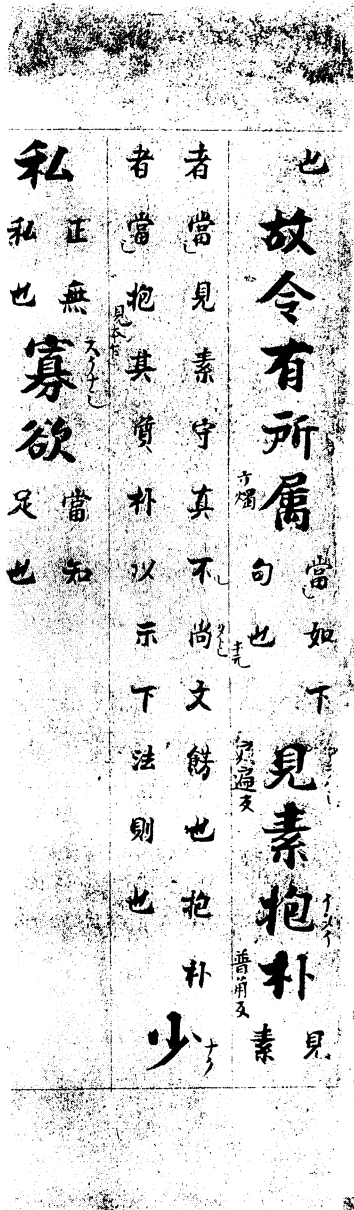 也故令有所属當如下句也見素抱朴見素
賢遍反
普角反
者當見素守真不尚文餝也抱朴
者當抱其質朴以示下法則也少
私正無私也寡欲當知足也